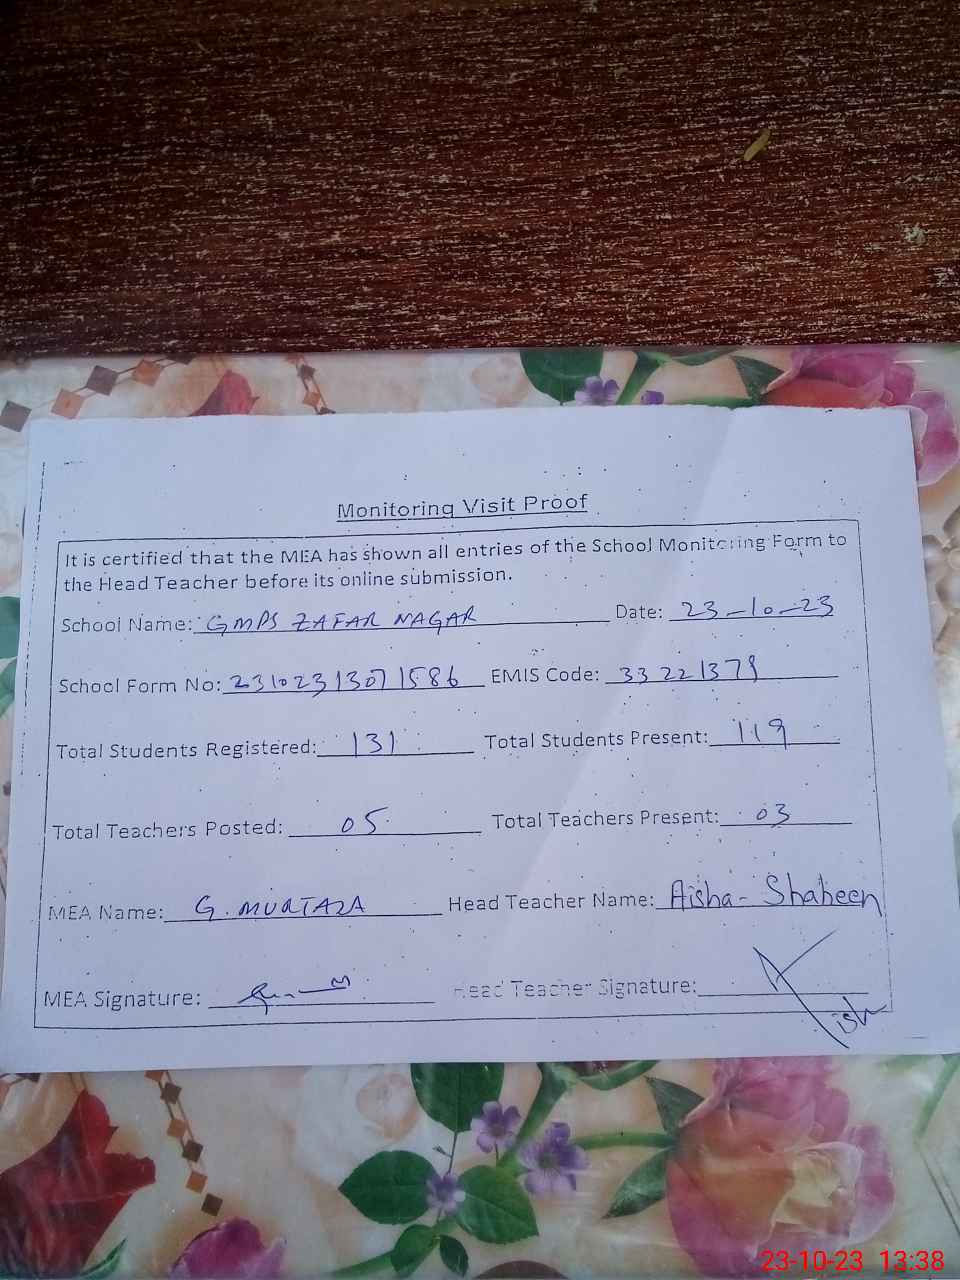 Monitoring Visit Proof
It is certified that the MEA has shown all entries of the School Monitoring Form to
the Head Teacher before its online submission.
School Name: GMPS ZAFAR NAGAR Date: 23-10-23
School Form No: 23102313071586 EMIS Code: 33221379
Total Students Registered: 131 Total Students Present: 119
Total Teachers Posted: 05 Total Teachers Present: 03
MEA Name: G. MURTAZA Head Teacher Name: Aisha - Shaheen
MEA Signature: Head Teacher Signature: Aish
23-10-23 13:38